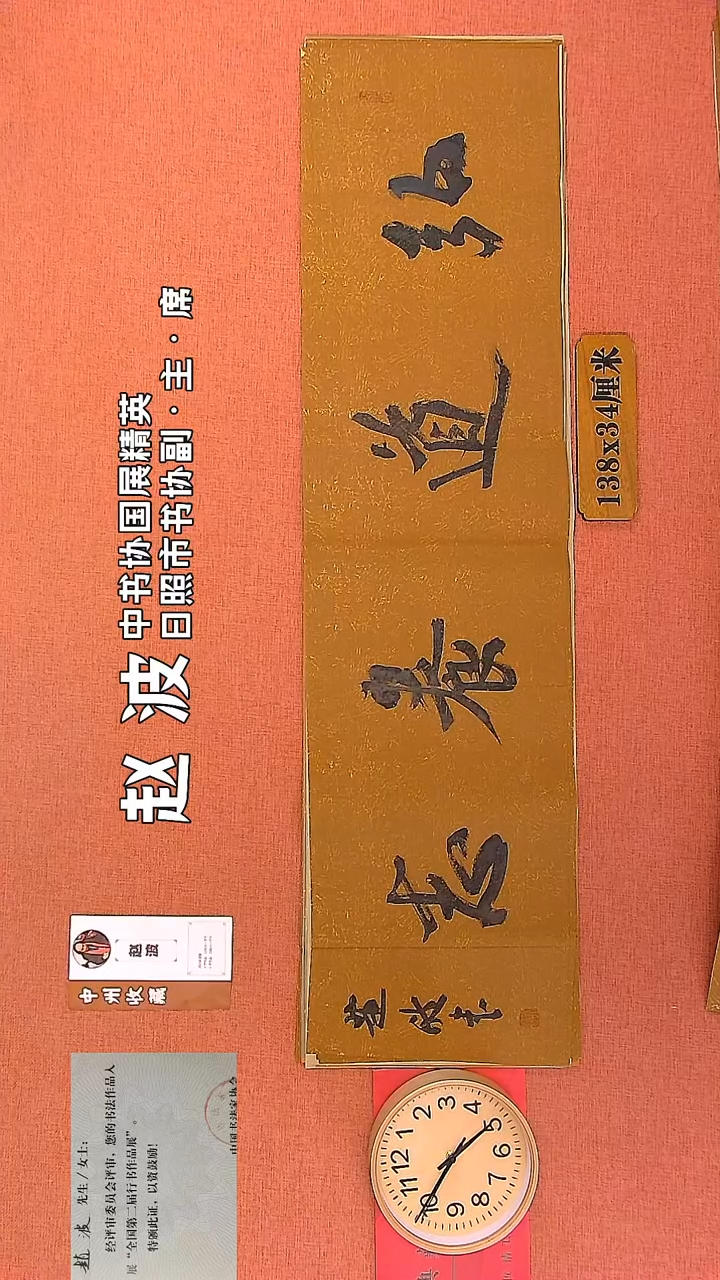 赵波
中书协国展精英
日照市书协副·主·席
弘道養正
138x34厘米
赵波
中州收藏
趙波 先生/女士：
经评审委员会评审，您的书法作品入
展“全国第二届行书作品展”。
特颁此证，以资鼓励！
中国书法家协会
11 12 1 2 3 4 5 6 7 8 9 10